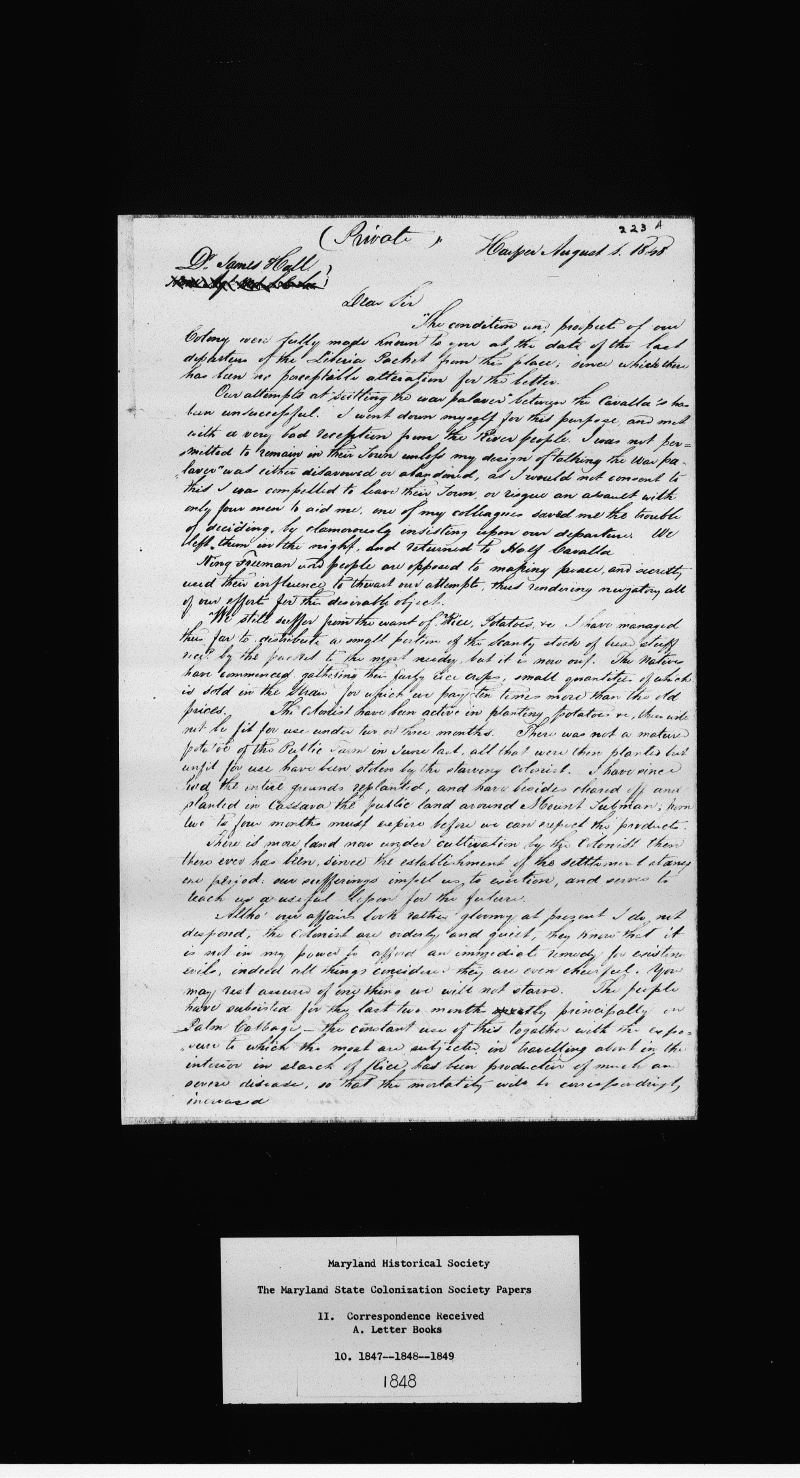 223 A
(Private)
Harper August 1. 1848
Dr. James Hall
Dear Sir
The condition and prospect of our
Colony were fully made known to you at the date of the last
departure of the Liberia Packet from this place, since which there
has been no perceptible alteration for the better.
Our attempts at "settling the war palaver" between the Cavalla's has
been unsuccessful. I went down myself for this purpose, and met
with a very bad reception from the River people. I was not per=
mitted to remain in their Town unless my design of talking the war pa-
laver" was either disavowed or abandoned, as I would not consent to
this I was compelled to leave their Town, or risque an assault with
only four men to aid me, one of my colleagues saved me the trouble
of deciding, by clamorously insisting upon our departure. We
left them in the night, and returned to Half Cavalla
King Freeman and people are opposed to making peace, and secretly
used their influence to thwart our attempts, thus rendering nugatory all
of our efforts for this desirable object.
We still suffer from the want of Rice, Potatoes, &c I have managed
thus far to distribute a small portion of the scanty stock of bread stuff
recd. by the packet to the most needy, but it is now out. The Natives
have commenced gathering their early rice crops, small quantities of which
is sold in the Straw for which we pay ten times more than the old
prices. The Colonist have been active in planting potatoes &c, these will
not be fit for use under two or three months. There was not a matured
potatoe on the Public Farm in June last, all that were then planted but
unfit for use have been stolen by the starving Colonist. I have since
had the entire grounds replanted, and have besides cleared off and
planted in Cassava the public land around Mount Tubman; from
two to four months must expire before we can expect the products.
There is more land now under cultivation by the Colonist than
there ever has been, since the establishment of the settlement at any
one period. our sufferings impel us to exertion, and serves to
teach us a useful lesson for the future.
Altho' our affairs look rather gloomy at present I do not
despond, the Colonist are orderly and quiet, they know that it
is not in my power to afford an immediate remedy for existing
evils, indeed all things considered they are even cheerful. You
may rest assured of one thing we will not starve. The people
have subsisted for the last two months principally on
Palm Cabbage — the constant use of this together with the expo=
sure to which the most are subjected in travelling about in the
interior in search of Rice, has been productive of much and
severe disease, so that the mortality will be correspondingly
increased
Maryland Historical Society
The Maryland State Colonization Society Papers
II. Correspondence Received
A. Letter Books
10. 1847--1848--1849
1848